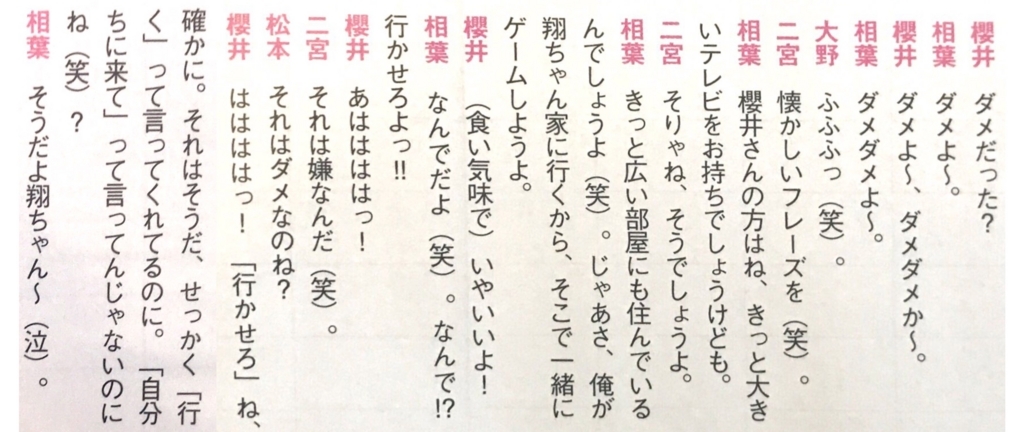 櫻井　ダメだった？
相葉　ダメよ〜。
櫻井　ダメよ〜、ダメダメか〜。
相葉　ダメダメよ〜。
大野　ふふふっ（笑）。
二宮　懐かしいフレーズを（笑）。
相葉　櫻井さんの方はね、きっと大き
いテレビをお持ちでしょうけども。
二宮　そりゃね、そうでしょうよ。
相葉　きっと広い部屋にも住んでいる
んでしょうよ（笑）。じゃあさ、俺が
翔ちゃん家に行くから、そこで一緒に
ゲームしようよ。
櫻井　（食い気味で）いやいいよ！
相葉　なんでだよ（笑）。なんで!?
行かせろよっ!!
櫻井　あははははっ！
二宮　それは嫌なんだ（笑）。
松本　それはダメなのね？
櫻井　はははははっ！　「行かせろ」ね、
確かに。それはそうだ、せっかく「行
く」って言ってくれてるのに。「自分
ちに来て」って言ってんじゃないのに
ね（笑）？
相葉　そうだよ翔ちゃん〜（泣）。